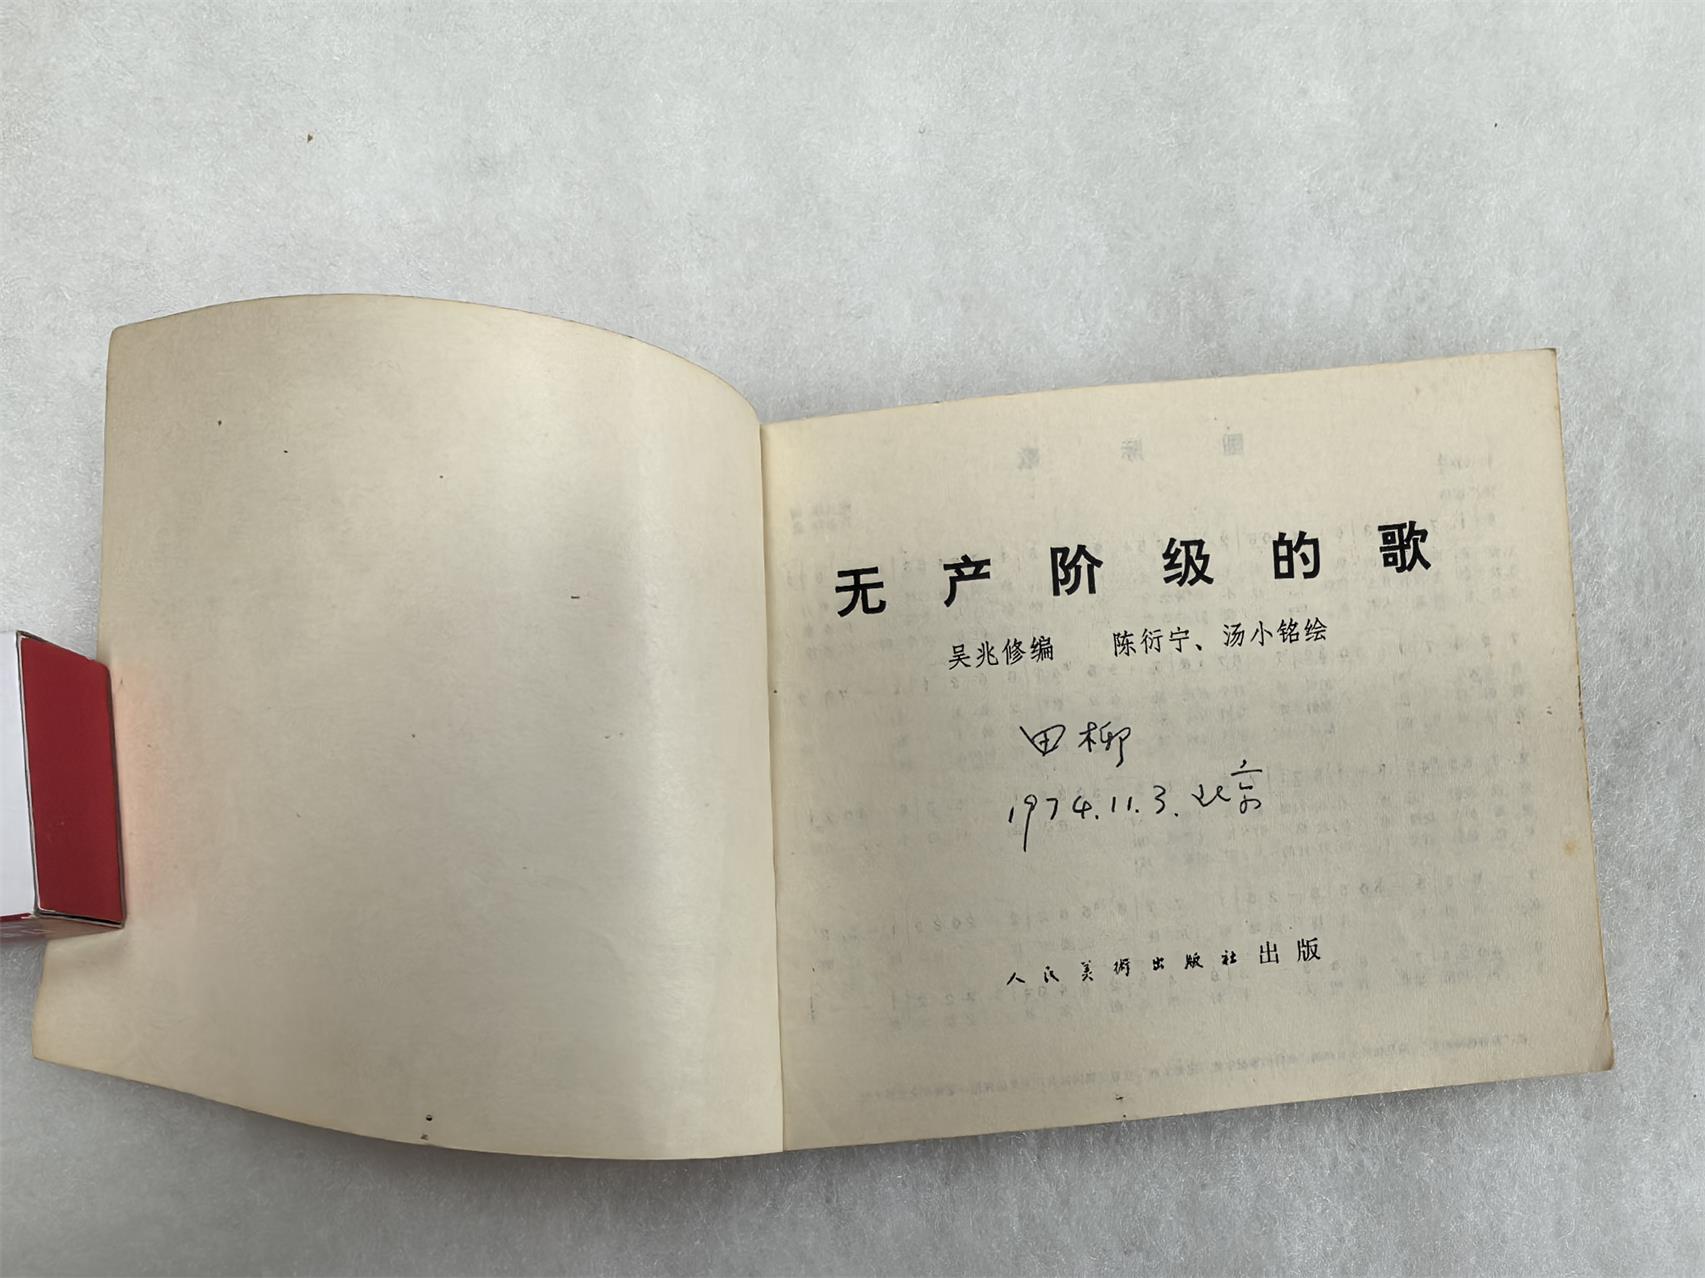 无产阶级的歌
吴兆修编 陈衍宁、汤小铭绘
田柳
1974.11.3.北京
人民美術出版社出版